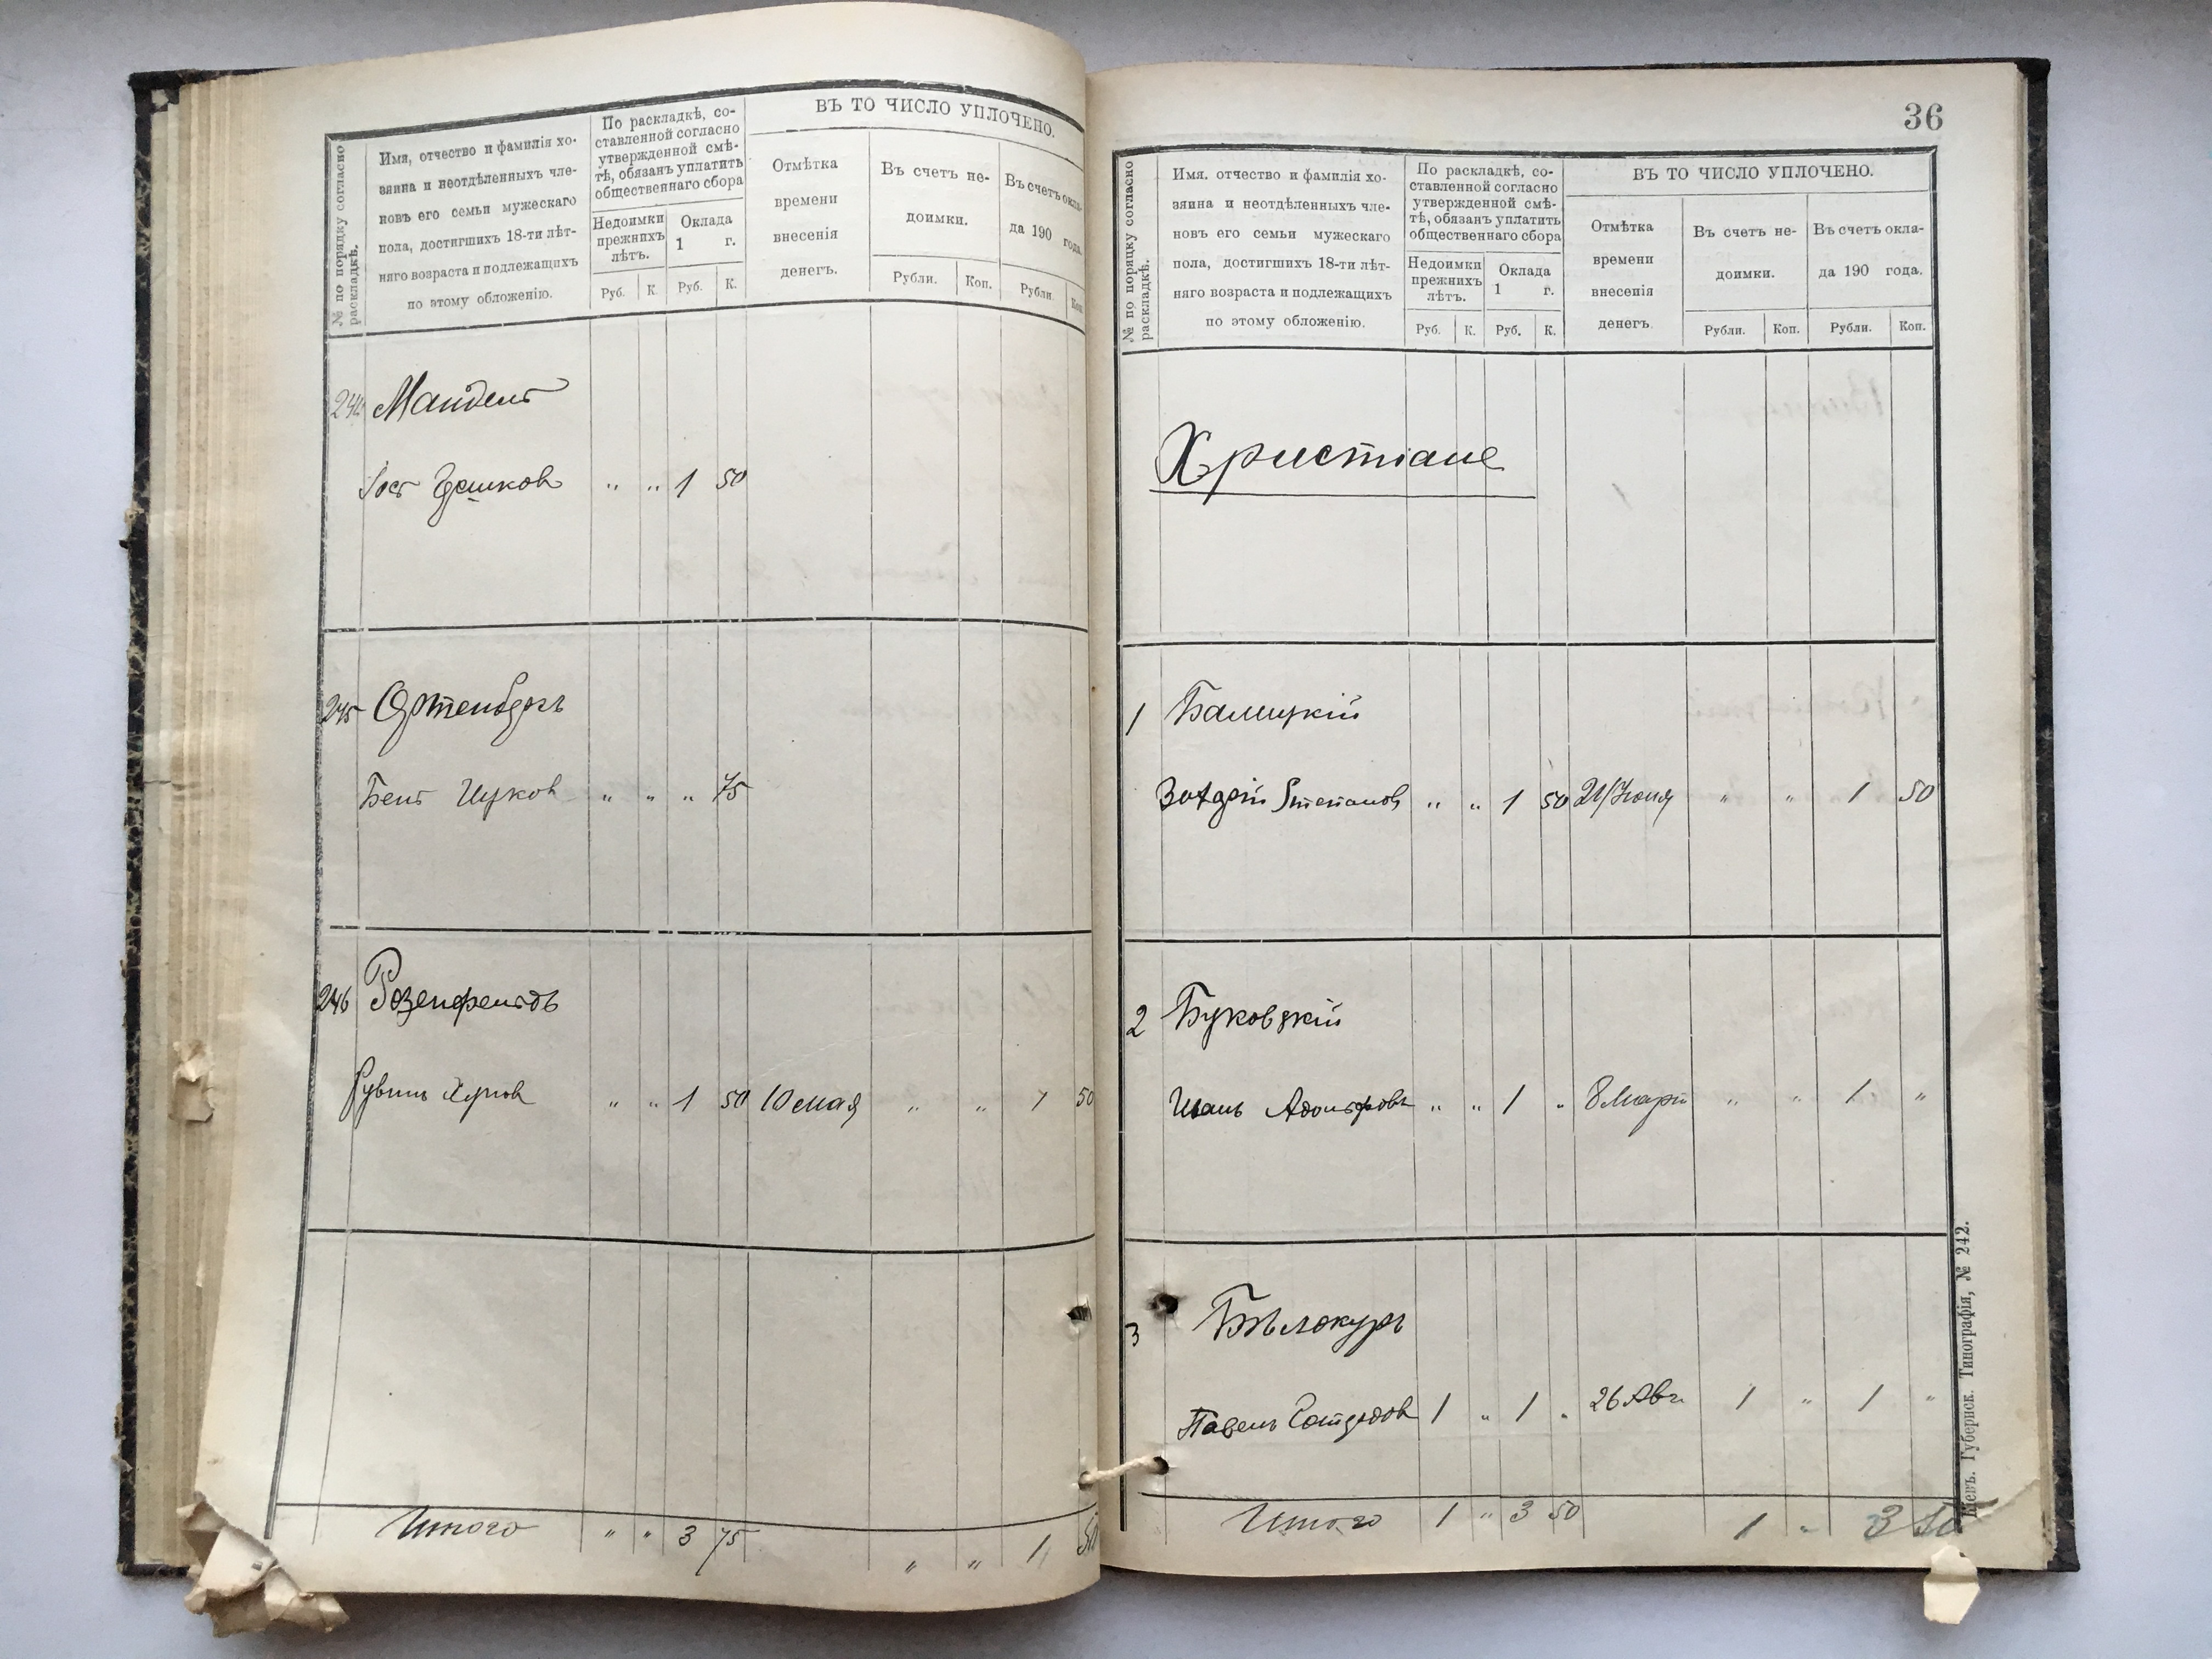 № по порядку согласно раскладкѣ.
Имя, отчество и фамилія хо-
зяина и неотдѣленныхъ чле-
новъ его семьи мужескаго
пола, достигшихъ 18-ти лѣт-
няго возраста и подлежащихъ
по этому обложенію.
По раскладкѣ, со-
ставленной согласно
утвержденной смѣ-
тѣ, обязанъ уплатить
общественнаго сбора
Недоимки прежнихъ лѣтъ.
Оклада 1 г.
Руб. К. Руб. К.
ВЪ ТО ЧИСЛО УПЛОЧЕНО.
Отмѣтка
времени
внесенія
денегъ.
Въ счетъ не-
доимки.
Въ счетъ окла-
да 190 года.
Рубли. Коп. Рубли Коп.
244 Мандель
" " 1 50
245 Ортенбергъ
Бенъ Ицков " " " 75
246 Розенфельдъ
Рувинъ " " 1 50 10 мая " " 1 50
Итого " " 3 75 " " 1 50
36
№ по порядку согласно раскладкѣ.
Имя. отчество и фамилія хо-
зяина и неотдѣленныхъ чле-
новъ его семьи мужескаго
пола, достигшихъ 18-ти лѣт-
няго возраста и подлежащихъ
по этому обложенію.
По раскладкѣ, со-
ставленной согласно
утвержденной смѣ-
тѣ, обязанъ уплатить
общественнаго сбора
Недоимки прежнихъ лѣтъ.
Оклада 1 г.
Руб. К. Руб. К.
ВЪ ТО ЧИСЛО УПЛОЧЕНО.
Отмѣтка
времени
внесенія
денегъ.
Въ счетъ не-
доимки.
Въ счетъ окла-
да 190 года.
Рубли. Коп. Рубли. Коп.
Христіане
1 Балицкій
Степанов " " 1 50 21/Іюня " " 1 50
2 Буковскій
Иванъ Адольфовъ " " 1 " 8 Март " " 1 "
3 Бѣлокуръ
Павелъ 1 " 1 " 26 Авг. 1 " 1 "
Итого 1 " 3 50 1 " 3 50
Кіевъ. Губернск. Типографія, № 242.